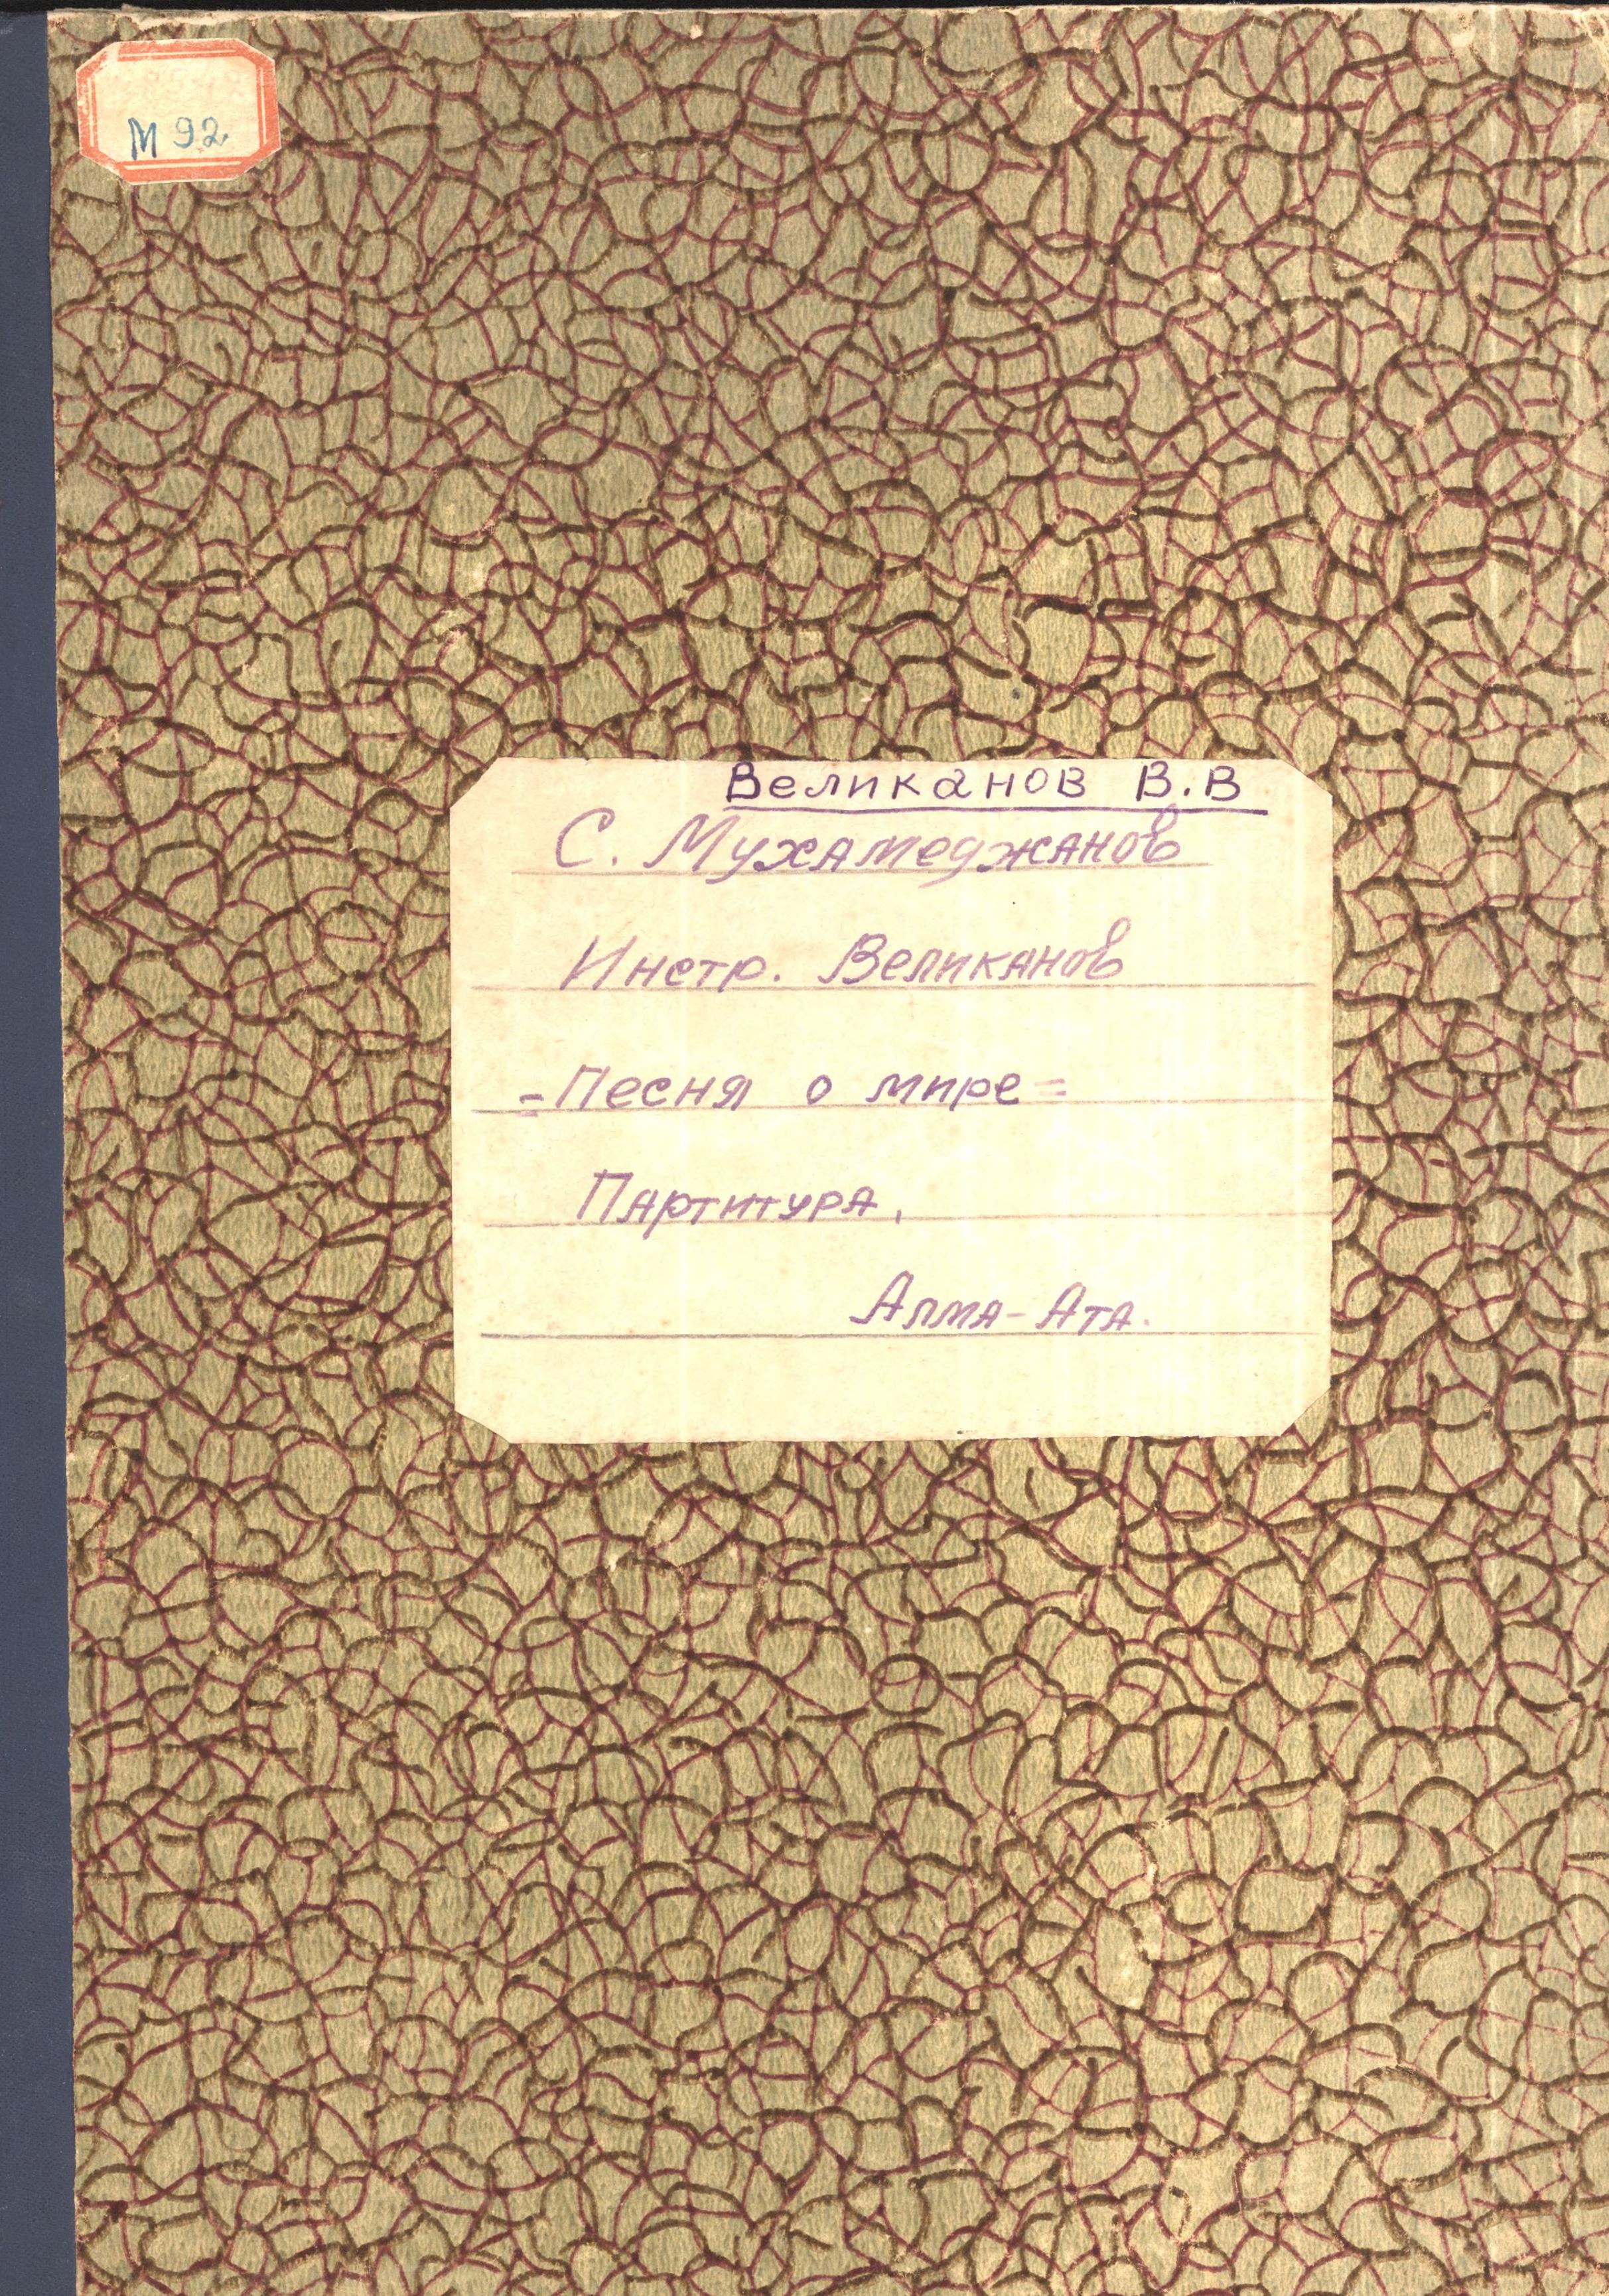 М 92
Великанов В.В
С. Мухамеджанов
Инстр. Великанов
=Песня о мире=
Партитура.
Алма-Ата.